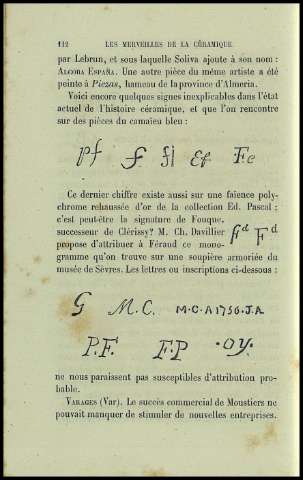 112 LES MERVEILLES DE LA CÉRAMIQUE.
par Lebrun, et sous laquelle Soliva ajoute à son nom :
ALCORA ESPAÑA. Une autre pièce du même artiste a été
peinte à Piezas, hameau de la province d'Almeria.
Voici encore quelques signes inexplicables dans l'état
actuel de l'histoire céramique, et que l'on rencontre
sur des pièces du camaïeu bleu :
Pf f. fl Ef Fe
Ce dernier chiffre existe aussi sur une faïence poly-
chrome rehaussée d'or de la collection Ed. Pascal ;
c'est peut-être la signature de Fouque,
successeur de Clérissy? M. Ch. Davillier
propose d'attribuer à Féraud ce mono-
gramme qu'on trouve sur une soupière armoriée du
musée de Sèvres. Les lettres ou inscriptions ci-dessous :
G M.C. M·C·A 1756.J.A
P.F. F.P ·OY.
ne nous paraissent pas susceptibles d'attribution pro-
bable.
VARAGES (Var). Le succès commercial de Moustiers ne
pouvait manquer de stimuler de nouvelles entreprises.